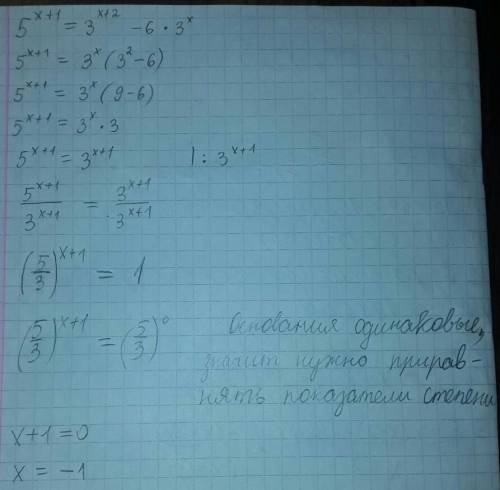 5^{x+1} = 3^{x+2} - 6 · 3^x
5^{x+1} = 3^x (3^2 - 6)
5^{x+1} = 3^x (9 - 6)
5^{x+1} = 3^x · 3
5^{x+1} = 3^{x+1} | : 3^{x+1}
\frac{5^{x+1}}{3^{x+1}} = \frac{3^{x+1}}{3^{x+1}}
(\frac{5}{3})^{x+1} = 1
(\frac{5}{3})^{x+1} = (\frac{5}{3})^0
Основания одинаковые,
значит нужно прирав-
нять показатели степени
x+1=0
x = -1